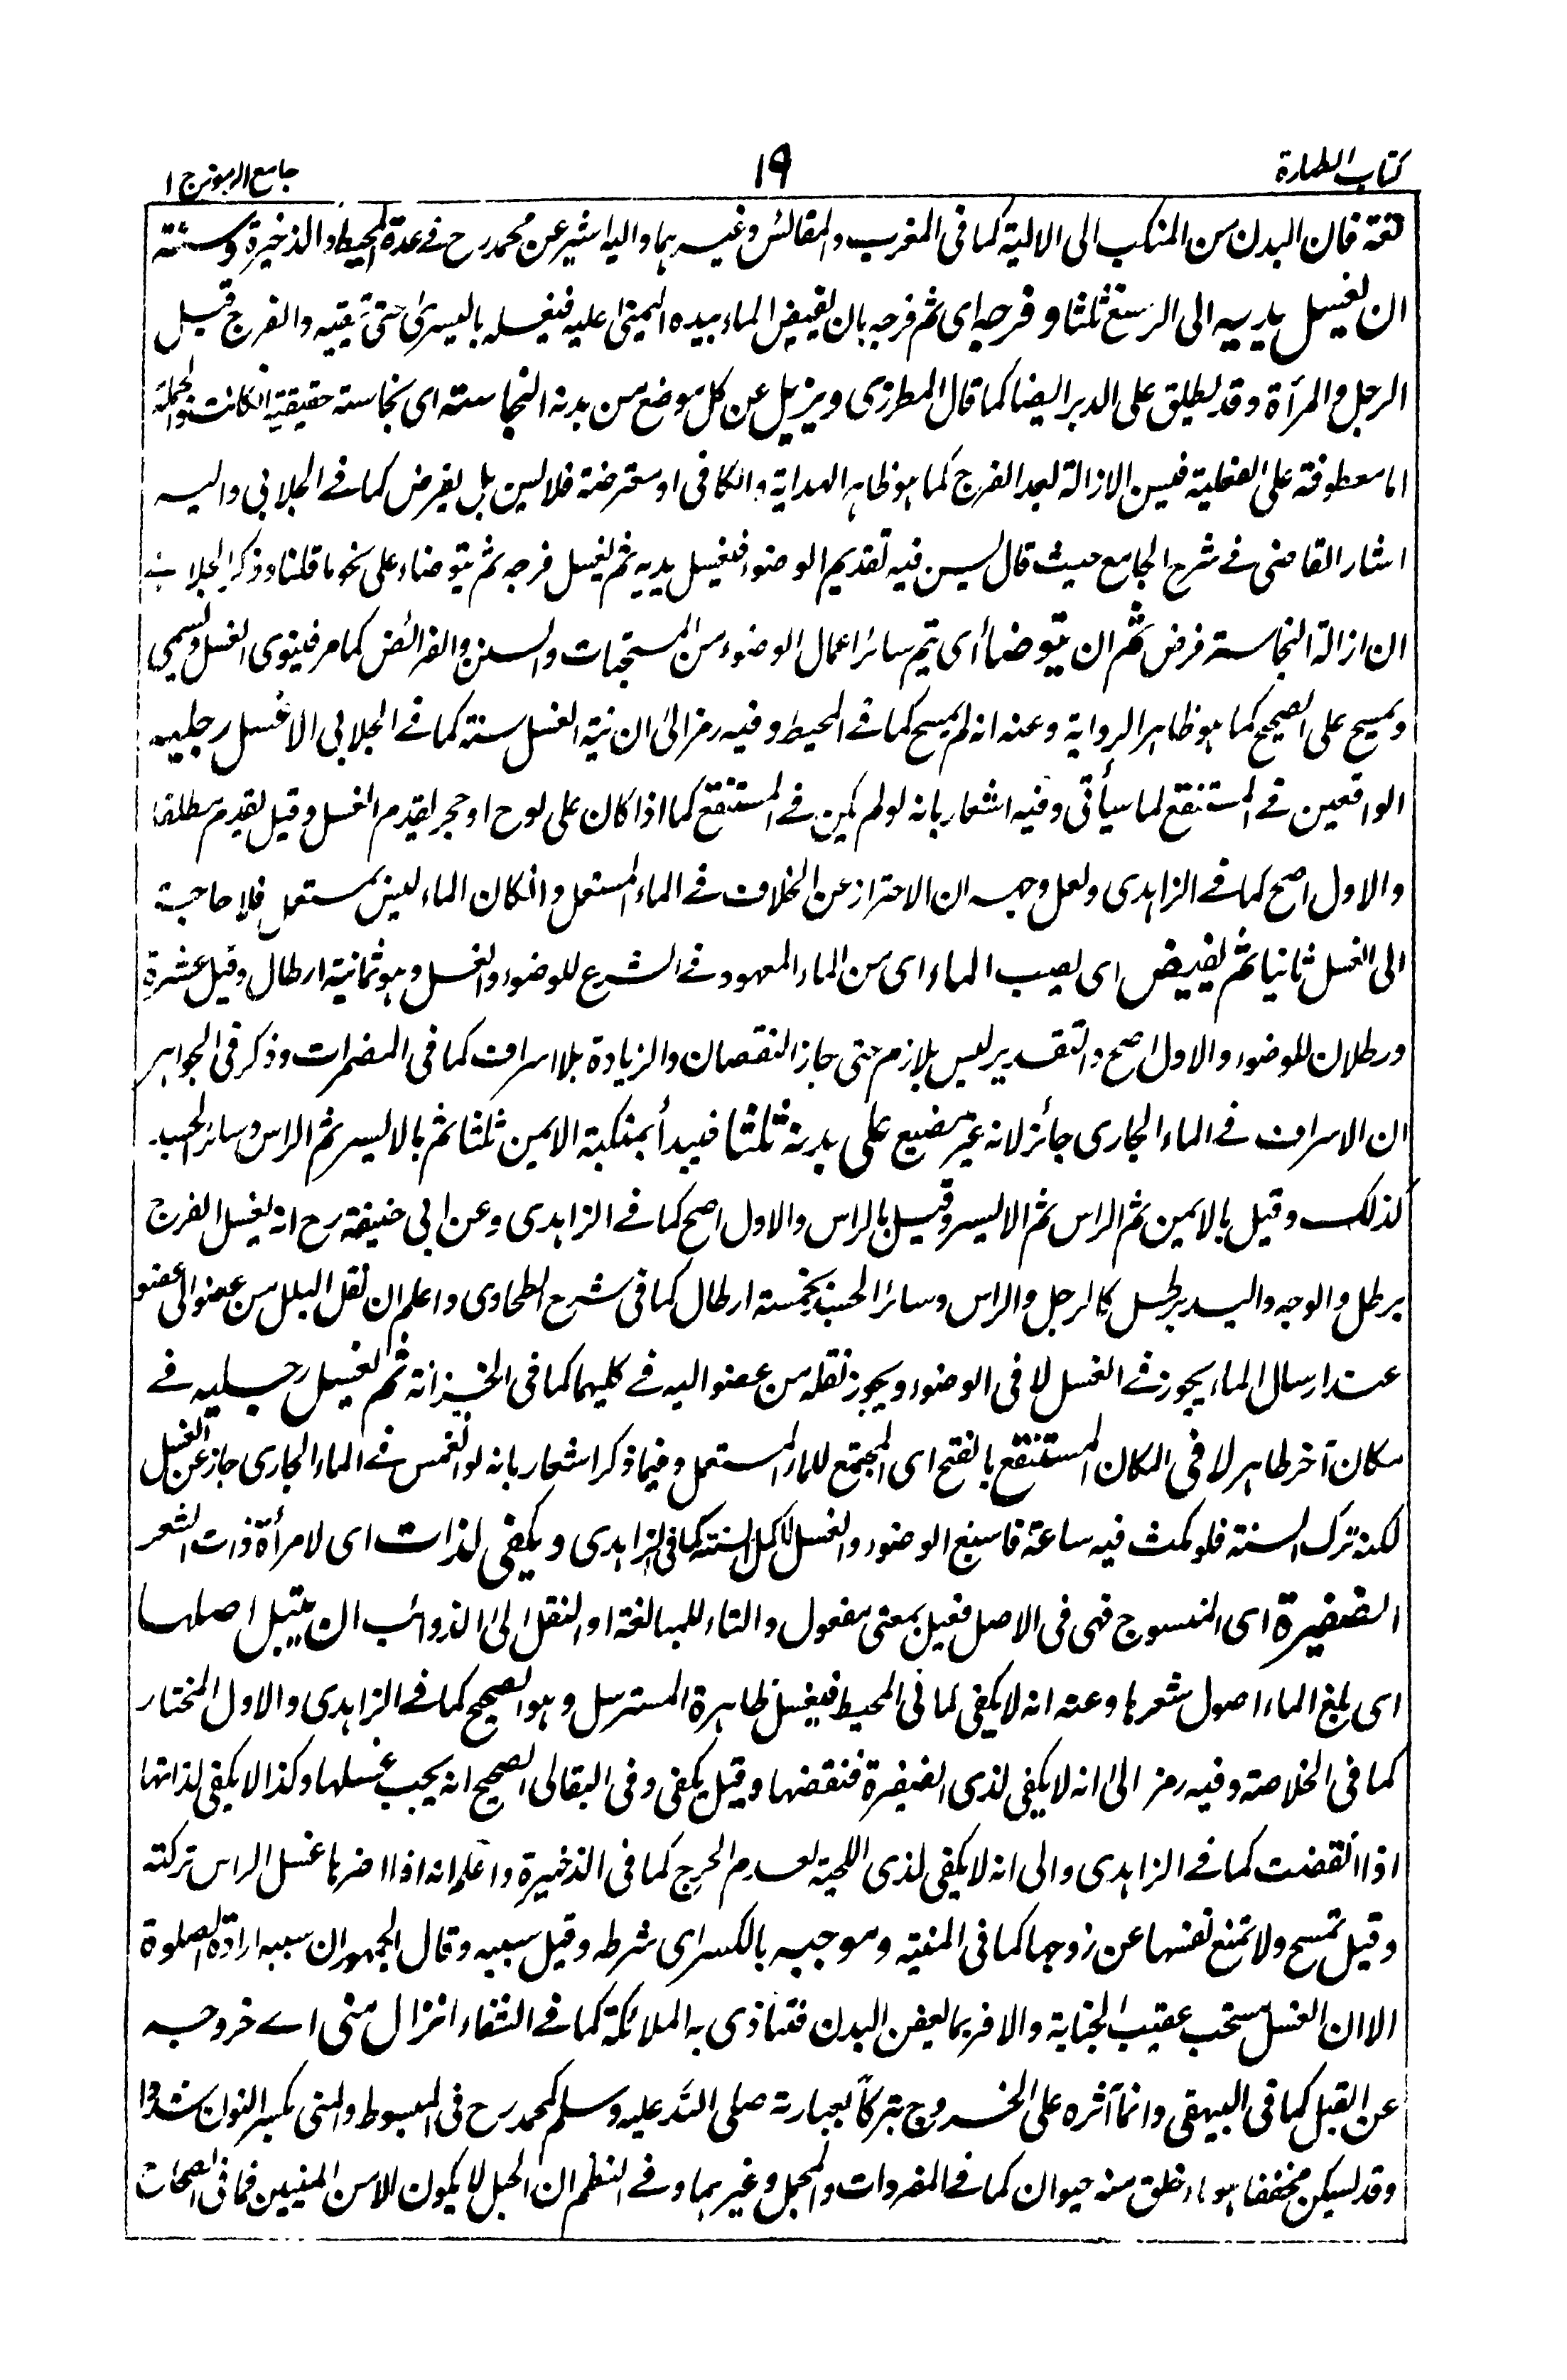 كتاب الطهارة
١٩
جامع الرموز ج ١
لغة فان البدن من المنكب الى الالية كما فى المغرب والمقائس وغيرهما واليه اشير عن محمد رح فے عدة المحيط والذخيرة وسنته
ان يغسل يديه الى الرسغ ثلثا و فرجه اى ثم فرجه بان يفيض الماء بيده اليمنى عليه فيغسله باليسرى حتى تنقيه والفرج قبل
الرجل والمرأة وقد يطلق على الدبر ايضا كما قال المطرزى ويزيل عن كل موضع من بدنه النجاسته اى نجاسته حقيقية انكانت والجملة
اما معطوفة على الفعلية فيسن الازالة لبعد الفرج كما هو ظاهر الهداية والكافى او معترضة فلا يسن بل يفرض كما فے الجلابى واليه
اشار القاضى فے شرح الجامع حيث قال يسن فيه تقديم الوضوء فيغسل يديه ثم يغسل فرجه ثم يتوضاء على نحو ما قلنا وذكر الجلابے
ان ازالة النجاسته فرض ثم ان يتوضأ اى يتم سائر اعمال الوضوء من المستحبات والسنن والفرائض كما مر فينوى الغسل ويسمى
ويمسح على الصحيح كما هو ظاهر الرواية وعنه انه لم يمسح كما فے المحيط وفيه رمز الى ان نية الغسل سنته كما فے الجلابى الا غسل رجليه
الواقعين فے المستنقع لما سيأتى وفيه اشعار بانه لو لم يكن فے المستنقع كما اذا كان على لوح او حجر يقدم الغسل وقيل يقدم مطلقا
والاول اصح كما فے الزاهدى ولعل وجهه ان الاحتراز عن الخلاف فے الماء المستعمل وانكان الماء ليس بمستعمل فلا حاجة
الى الغسل ثانيا ثم يفيض اى يصب الماء اى من الماء المعهود فے الشرع للوضوء والغسل وهو ثمانية ارطال وقيل عشرة
ورطلان للوضوء والاول اصح والتقدير ليس بلازم حتى جاز النقصان والزيادة بلا اسراف كما فى المضمرات وذكر فى الجواهر
ان الاسراف فے الماء الجارى جائز لانه غير مضيع على بدنه ثلثا فيبدأ بمنكبة الايمن ثلثا ثم بالايسر ثم الراس وسائر الجسد
كذلك وقيل بالايمن ثم الراس ثم الايسر وقيل بالراس والاول اصح كما فے الزاهدى وعن ابى حنيفة رح انه يغسل الفرج
برطل والوجه واليد برطل كالرجل والراس وسائر الجسد بخمسته ارطال كما فى شرح الطحاوى واعلم ان نقل البلل من عضو الى عضو
عند ارسال الماء يجوز فے الغسل لا فى الوضوء ويجوز نقله من عضو اليه فے كليهما كما فى الخزانة ثم يغسل رجليه فے
مكان آخر طاهر لا فى المكان المستنقع بالفتح اى المجتمع للماء المستعمل وفيما ذكر اشعار بانه لو انغمس فے الماء الجارى جاز عن الغسل
لكنه ترك السنة فلو مكث فيه ساعة فاسبغ الوضوء والغسل لاكمل السنة كما فى الزاهدى ويكفى لذات اى لامرأة ذات الشعر
الضفيرة اى المنسوج فهى فى الاصل فعيل بمعنى مفعول والتاء للمبالغة او النقل الى الذوائب ان يبتل اصلها
اى يبلغ الماء اصول شعرها وعنه انه لا يكفى كما فى المحيط فيغسل ظاهرة المسترسل وهو الصحيح كما فے الزاهدى والاول المختار
كما فى الخلاصة وفيه رمز الى انه لا يكفى لذى الضفيرة فنقضها وقيل يكفى وفى البقالى الصحيح انه يجب غسلها وكذا لا يكفى لذاتها
اذا انقضت كما فے الزاهدى والى انه لا يكفى لذى اللحية لعدم الحرج كما فى الذخيرة واعلم انه اذا اضرها غسل الراس تركته
وقيل تمسح ولا تمنع نفسها عن زوجها كما فى المنية وموجبه بالكسر اى شرطه وقيل سببه وقال الجمهور ان سببه ارادة الصلوة
الا ان الغسل مستحب عقيب الجنابة والا فربما يعفن البدن فتتاذى به الملائكة كما فے الشفاء انزال منى اے خروجه
عن القبل كما فى البيهقى وانما آثره على الخروج تبركاً بعبارته صلى الله عليه وسلم كمحمد رح فى المبسوط والمنى بكسر النون مشددا
وقد يسكن مخففا هو ماء خلق منه حيوان كما فے المفردات والمجمل وغيرهما وفے النظم ان الحبل لا يكون الا من المنيين فما فى الصحاح